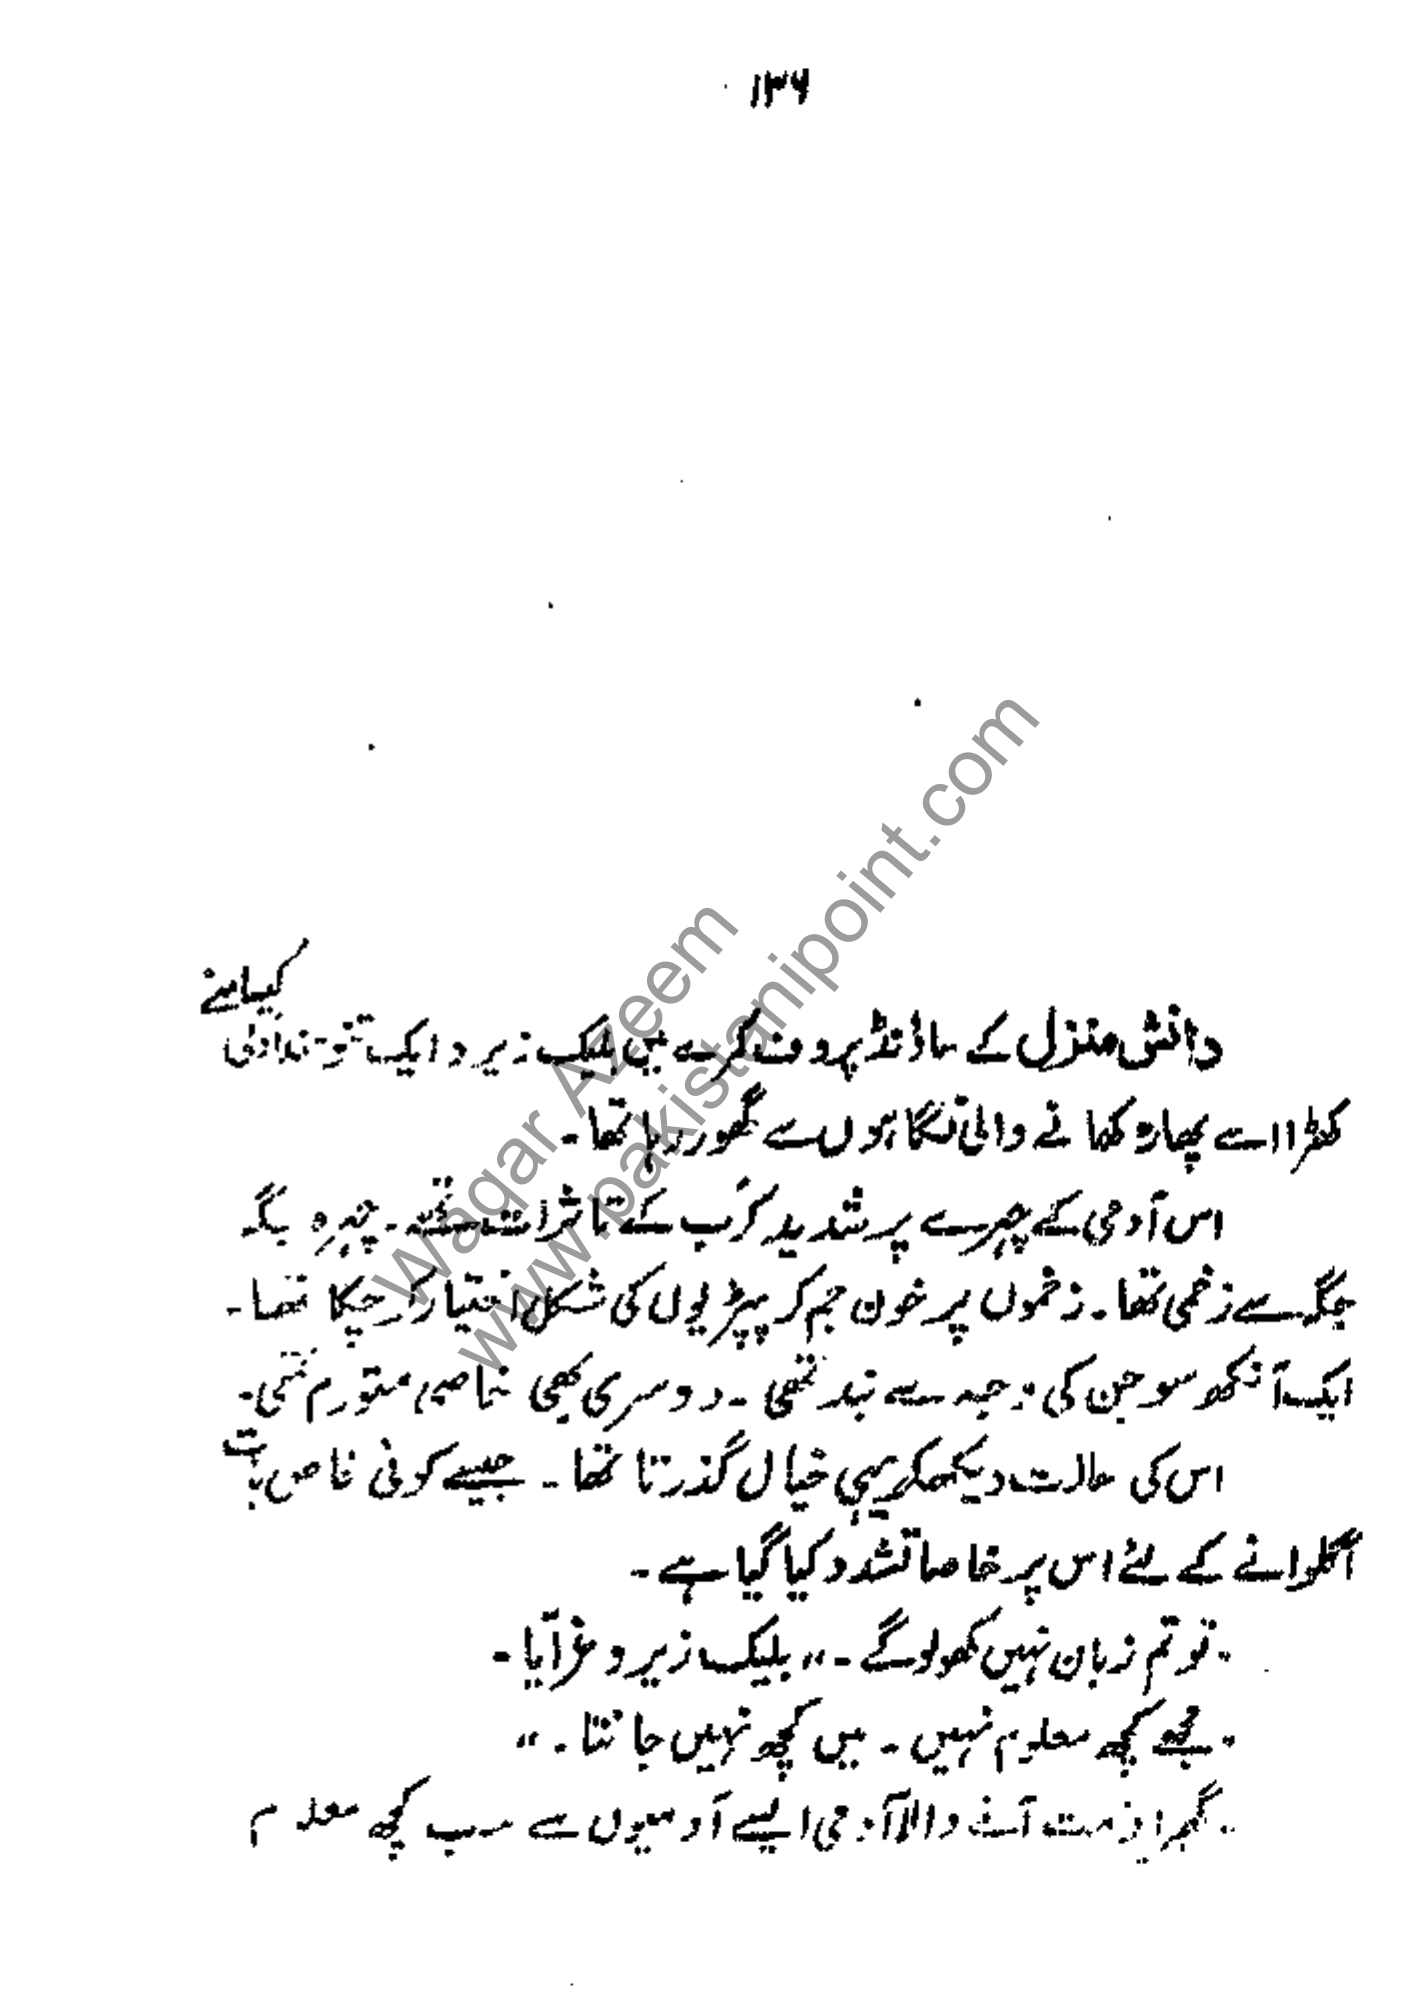 ۱۳۶
دانش منزل کے ساؤنڈ پروف کمرے میں بلیک زیرو ایک تنومند آدمی کے سامنے
کھڑا اسے پھاڑ کھانے والی نگاہوں سے گھور رہا تھا۔
اس آدمی کے چہرے پر شدید کرب کے تاثرات تھے۔ چہرہ جگہ
جگہ سے زخمی تھا۔ زخموں پر خون جم کر پپڑیوں کی شکل اختیار کر چکا تھا۔
ایک آنکھ سوجن کی وجہ سے بند تھی۔ دوسری بھی خاصی متورم تھی۔
اس کی حالت دیکھ کر یہی خیال گذرتا تھا۔ جیسے کوئی خاص بات
اگلوانے کے لئے اس پر خاصا تشدد کیا گیا ہے۔
"تو تم زبان نہیں کھولو گے۔" بلیک زیرو غرّایا۔
"مجھے کچھ معلوم نہیں۔ میں کچھ نہیں جانتا۔"
"گھبراؤ مت آنے والا آدمی ایسے آدمیوں سے سب کچھ معلوم
Waqar Azeem
www.pakistanipoint.com